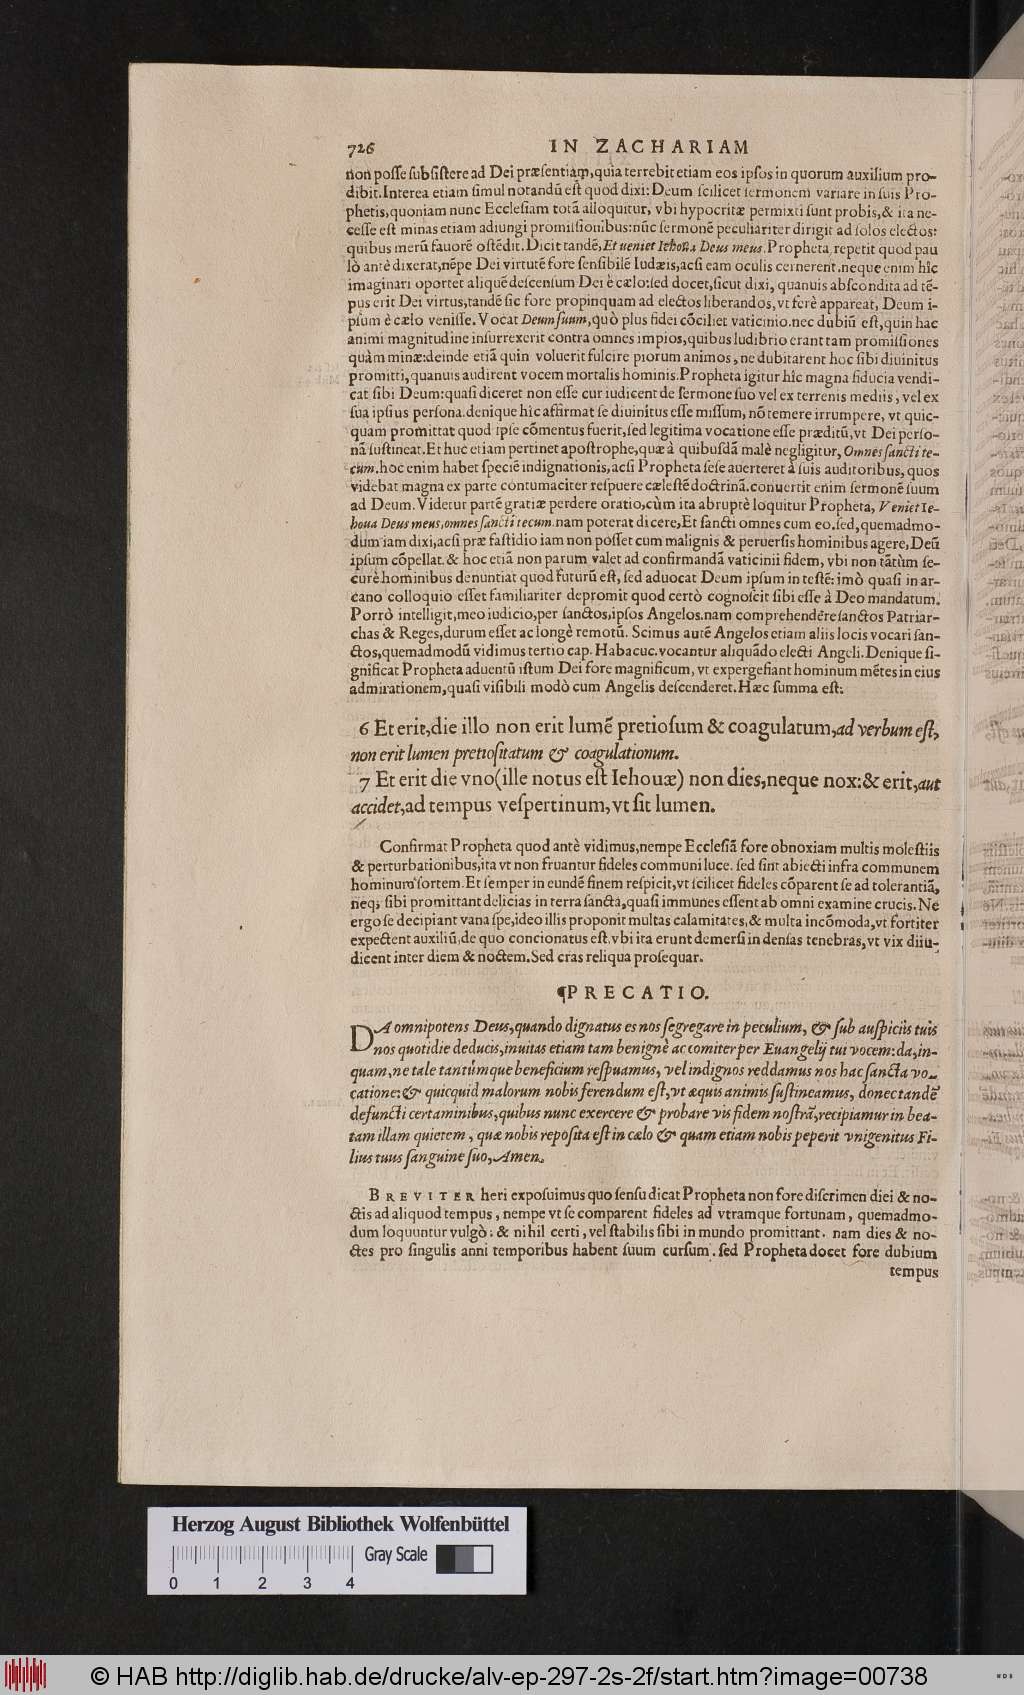 726 IN ZACHARIAM
non posse subsistere ad Dei præsentiam, quia terrebit etiam eos ipsos in quorum auxilium pro-
dibit. Interea etiam simul notandū est quod dixi: Deum scilicet sermonem variare in suis Pro-
phetis, quoniam nunc Ecclesiam totā alloquitur, vbi hypocritæ permixti sunt probis, & ita ne-
cesse est minas etiam adiungi promissionibus: nūc sermonē peculiariter dirigit ad solos electos:
quibus merū fauorē ostēdit. Dicit tandē, Et ueniet Iehoua Deus meus. Propheta repetit quod pau
lò antè dixerat, nēpe Dei virtutē fore sensibilē Iudæis, acsi eam oculis cernerent. neque enim hîc
imaginari oportet aliquē descensum Dei è cælo: sed docet, sicut dixi, quanuis abscondita ad tē-
pus erit Dei virtus, tandē sic fore propinquam ad electos liberandos, vt ferè appareat, Deum i-
psum è cælo venisse. Vocat Deum suum, quò plus fidei cōciliet vaticinio. nec dubiū est, quin hac
animi magnitudine insurrexerit contra omnes impios, quibus ludibrio erant tam promissiones
quàm minæ: deinde etiā quin voluerit fulcire piorum animos, ne dubitarent hoc sibi diuinitus
promitti, quanuis audirent vocem mortalis hominis. Propheta igitur hîc magna fiducia vendi-
cat sibi Deum: quasi diceret non esse cur iudicent de sermone suo vel ex terrenis mediis, vel ex
sua ipsius persona. denique hîc affirmat se diuinitus esse missum, nō temere irrumpere, vt quic-
quam promittat quod ipse cōmentus fuerit, sed legitima vocatione esse præditū, vt Dei perso-
nā sustineat. Et huc etiam pertinet apostrophe, quæ à quibusdā malè negligitur, Omnes sancti te-
cum. hoc enim habet speciē indignationis, acsi Propheta sese auerteret à suis auditoribus, quos
videbat magna ex parte contumaciter respuere cælestē doctrinā. conuertit enim sermonē suum
ad Deum. Videtur partē gratiæ perdere oratio, cùm ita abruptè loquitur Propheta, Veniet Ie-
houa Deus meus, omnes sancti tecum. nam poterat dicere, Et sancti omnes cum eo. sed, quemadmo-
dum iam dixi, acsi præ fastidio iam non posset cum malignis & peruersis hominibus agere, Deū
ipsum cōpellat. & hoc etiā non parum valet ad confirmandā vaticinii fidem, vbi non tātùm se-
curè hominibus denuntiat quod futurū est, sed aduocat Deum ipsum in testē: imò quasi in ar-
cano colloquio esset familiariter depromit quod certò cognoscit sibi esse à Deo mandatum.
Porrò intelligit, meo iudicio, per sanctos, ipsos Angelos. nam comprehendēre sanctos Patriar-
chas & Reges, durum esset ac longè remotū. Scimus autē Angelos etiam aliis locis vocari san-
ctos, quemadmodū vidimus tertio cap. Habacuc. vocantur aliquādo electi Angeli. Denique si-
gnificat Propheta aduentū istum Dei fore magnificum, vt expergefiant hominum mētes in eius
admirationem, quasi visibili modò cum Angelis descenderet. Hæc summa est:
6 Et erit, die illo non erit lumē pretiosum & coagulatum, ad verbum est,
non erit lumen pretiositatum & coagulationum.
7 Et erit die vno (ille notus est Iehouæ) non dies, neque nox: & erit, aut
accidet, ad tempus vespertinum, vt sit lumen.
Confirmat Propheta quod antè vidimus, nempe Ecclesiā fore obnoxiam multis molestiis
& perturbationibus, ita vt non fruantur fideles communi luce. sed sint abiecti infra communem
hominum sortem. Et semper in eundē finem respicit, vt scilicet fideles cōparent se ad tolerantiā,
neq; sibi promittant delicias in terra sancta, quasi immunes essent ab omni examine crucis. Ne
ergo se decipiant vana spe, ideo illis proponit multas calamitates, & multa incōmoda, vt fortiter
expectent auxiliū, de quo concionatus est. vbi ita erunt demersi in densas tenebras, vt vix diiu-
dicent inter diem & noctem. Sed cras reliqua prosequar.
¶PRECATIO.
DA omnipotens Deus, quando dignatus es nos segregare in peculium, & sub auspiciis tuis
nos quotidie deducis, inuitas etiam tam benignè ac comiter per Euangelij tui vocem: da, in-
quam, ne tale tantúmque beneficium respuamus, vel indignos reddamus nos hac sancta vo-
catione: & quicquid malorum nobis ferendum est, vt æquis animis sustineamus, donec tandē
defuncti certaminibus, quibus nunc exercere & probare vis fidem nostrā, recipiamur in bea-
tam illam quietem, quæ nobis reposita est in cælo & quam etiam nobis peperit vnigenitus Fi-
lius tuus sanguine suo, Amen.
BREVITER heri exposuimus quo sensu dicat Propheta non fore discrimen diei & no-
ctis ad aliquod tempus, nempe vt se comparent fideles ad vtramque fortunam, quemadmo-
dum loquuntur vulgò: & nihil certi, vel stabilis sibi in mundo promittant. nam dies & no-
ctes pro singulis anni temporibus habent suum cursum. sed Propheta docet fore dubium
tempus
Herzog August Bibliothek Wolfenbüttel
Gray Scale
0 1 2 3 4
© HAB http://diglib.hab.de/drucke/alv-ep-297-2s-2f/start.htm?image=00738